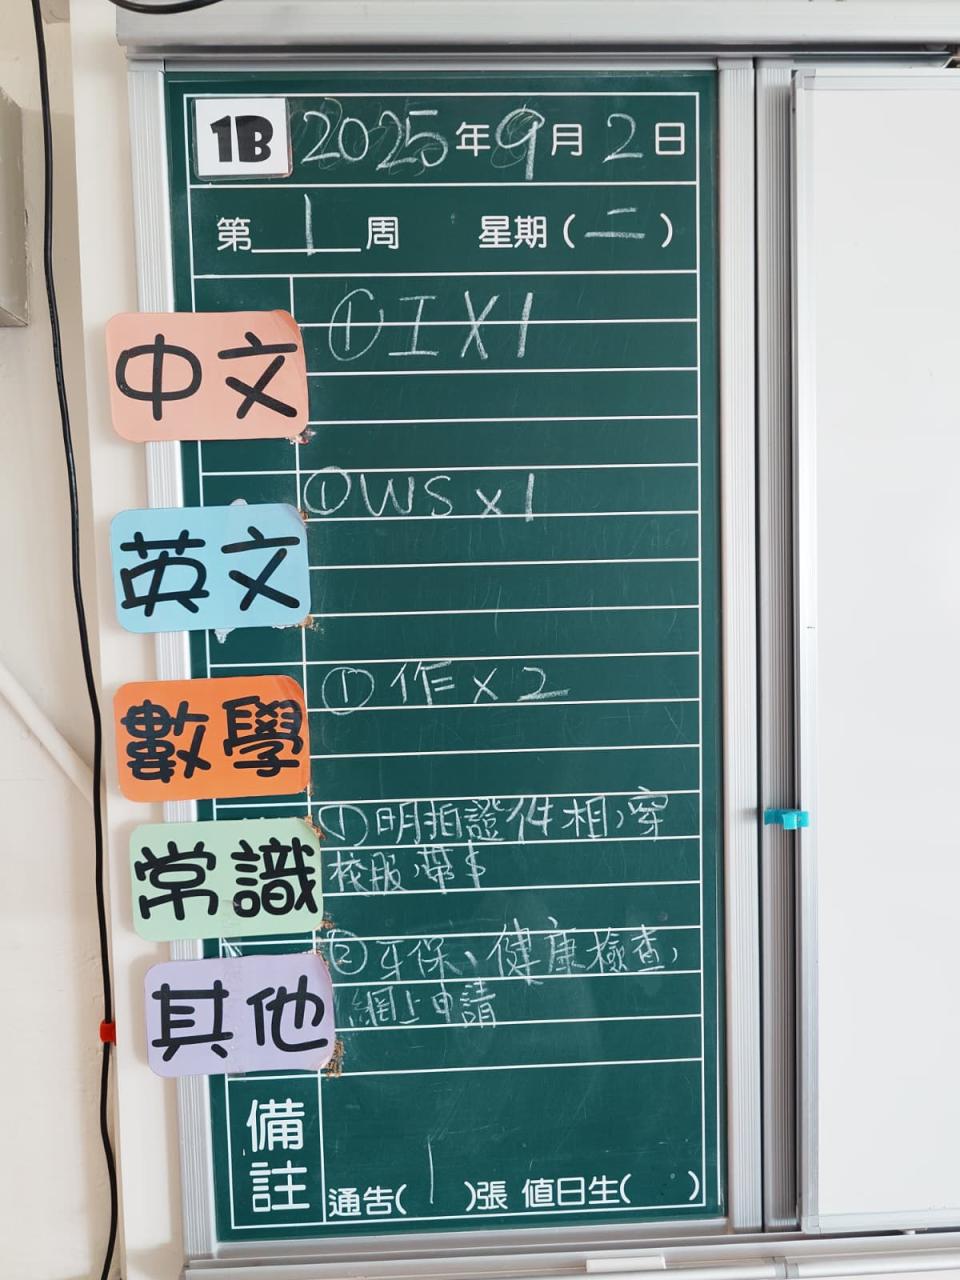 1B 2025年9月2日
第1周 星期(二)
中文
①工X1
英文
①WS x1
數學
①作x2
常識
①明拍證件相,穿
校服,帶$
其他
②牙保、健康檢查,
網上申請
備註
通告(1)張 值日生( )